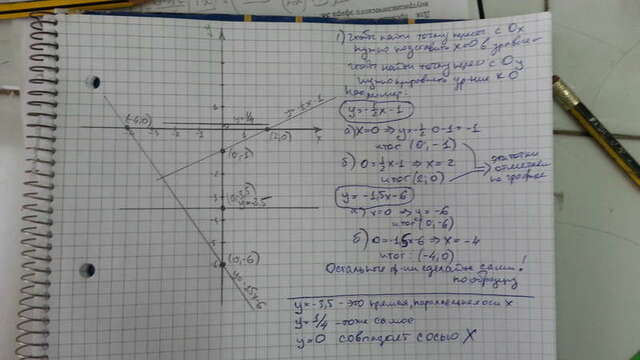 1) Чтобы найти точку перес. с Ox
нужно подставить x=0 в уравнение
чтобы найти точку перес с Oy
нужно приравнять ур-ние к 0
Например:
y=-½x-1
а) x=0 ⇒ y=-½·0-1=-1
итог (0, -1)
б) 0=½x-1 ⇒ x=2
итог (2; 0)
эти точки
отмечаем
на графике
y=-1,5x-6
а) x=0 ⇒ y=-6
итог (0, -6)
б) 0=-1,5-6 ⇒ x=-4
итог: (-4, 0)
Остальные ф-ии сделайте сами!
по образцу
y=-3,5 - это прямая, параллельная оси X
y=1/4 - тоже самое
y=0 совпадает с осью X
(-4; 0)
y=1/4
(2; 0)
x
(0; -1)
(0; 3,5)
(0; -6)
y=-1,5x-6